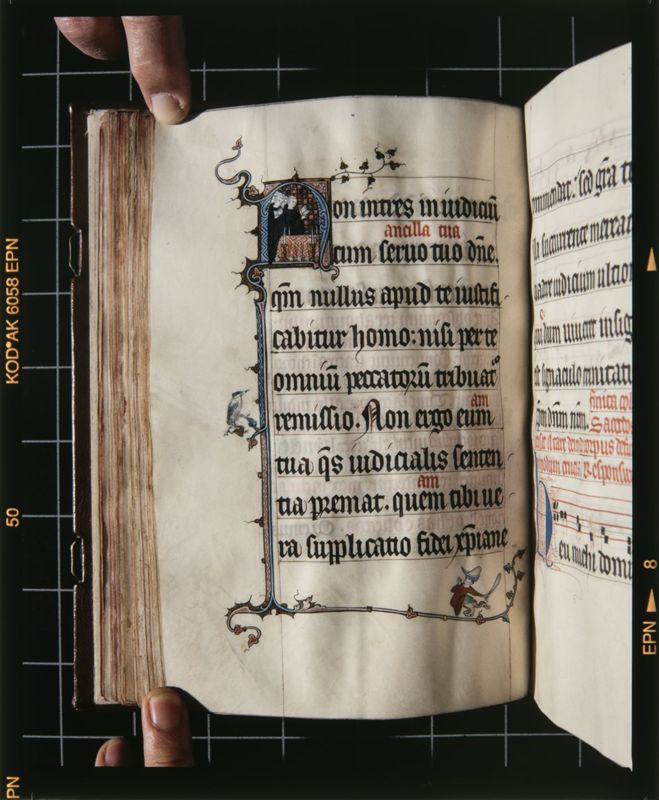 on intres in iudiciū
ancilla tua
cum seruo tuo dn̄e.
qm̄ nullus apud te iustifi
cabitur homo: nisi per te
omniū peccatorū tribuat᷒
am
remissio. Non ergo eum
tua q̄s iudicialis senten
am
tia premat. quem tibi ue
ra supplicatio fidei xp̄iane
sed gr̄a te
succurrente mereat
iudicium ultio
dum uiueret insig
signaculo trinitati
KODAK 6058 EPN
50
EPN
8
PN